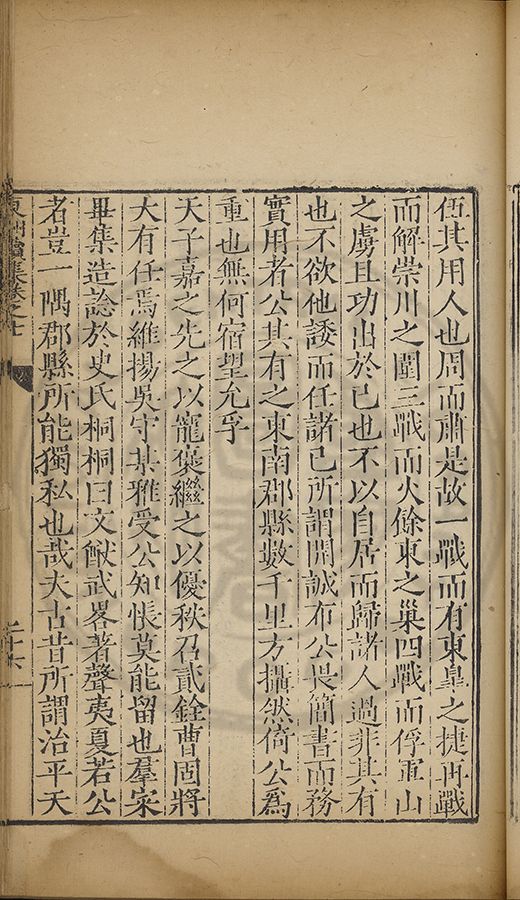 伍其用人也周而肅是故一戰而有東臯之捷再戰
而解崇川之圍三戰而火餘東之巢四戰而俘軍山
之虜且功出於已也不以自居而歸諸人過非其有
也不欲他諉而任諸己所謂開誠布公畏簡書而務
實用者公其有之東南郡縣數千里方攝然倚公爲
重也無何宿望允孚
天子嘉之先之以寵褒繼之以優秩召貳銓曹固將
大有任焉維揚吳守某雅受公知悵莫能留也羣寀
畢集造諗於史氏桐桐曰文猷武畧著聲夷夏若公
者豈一隅郡縣所能獨私也哉夫古昔所謂治平天
集卷之七
二十六